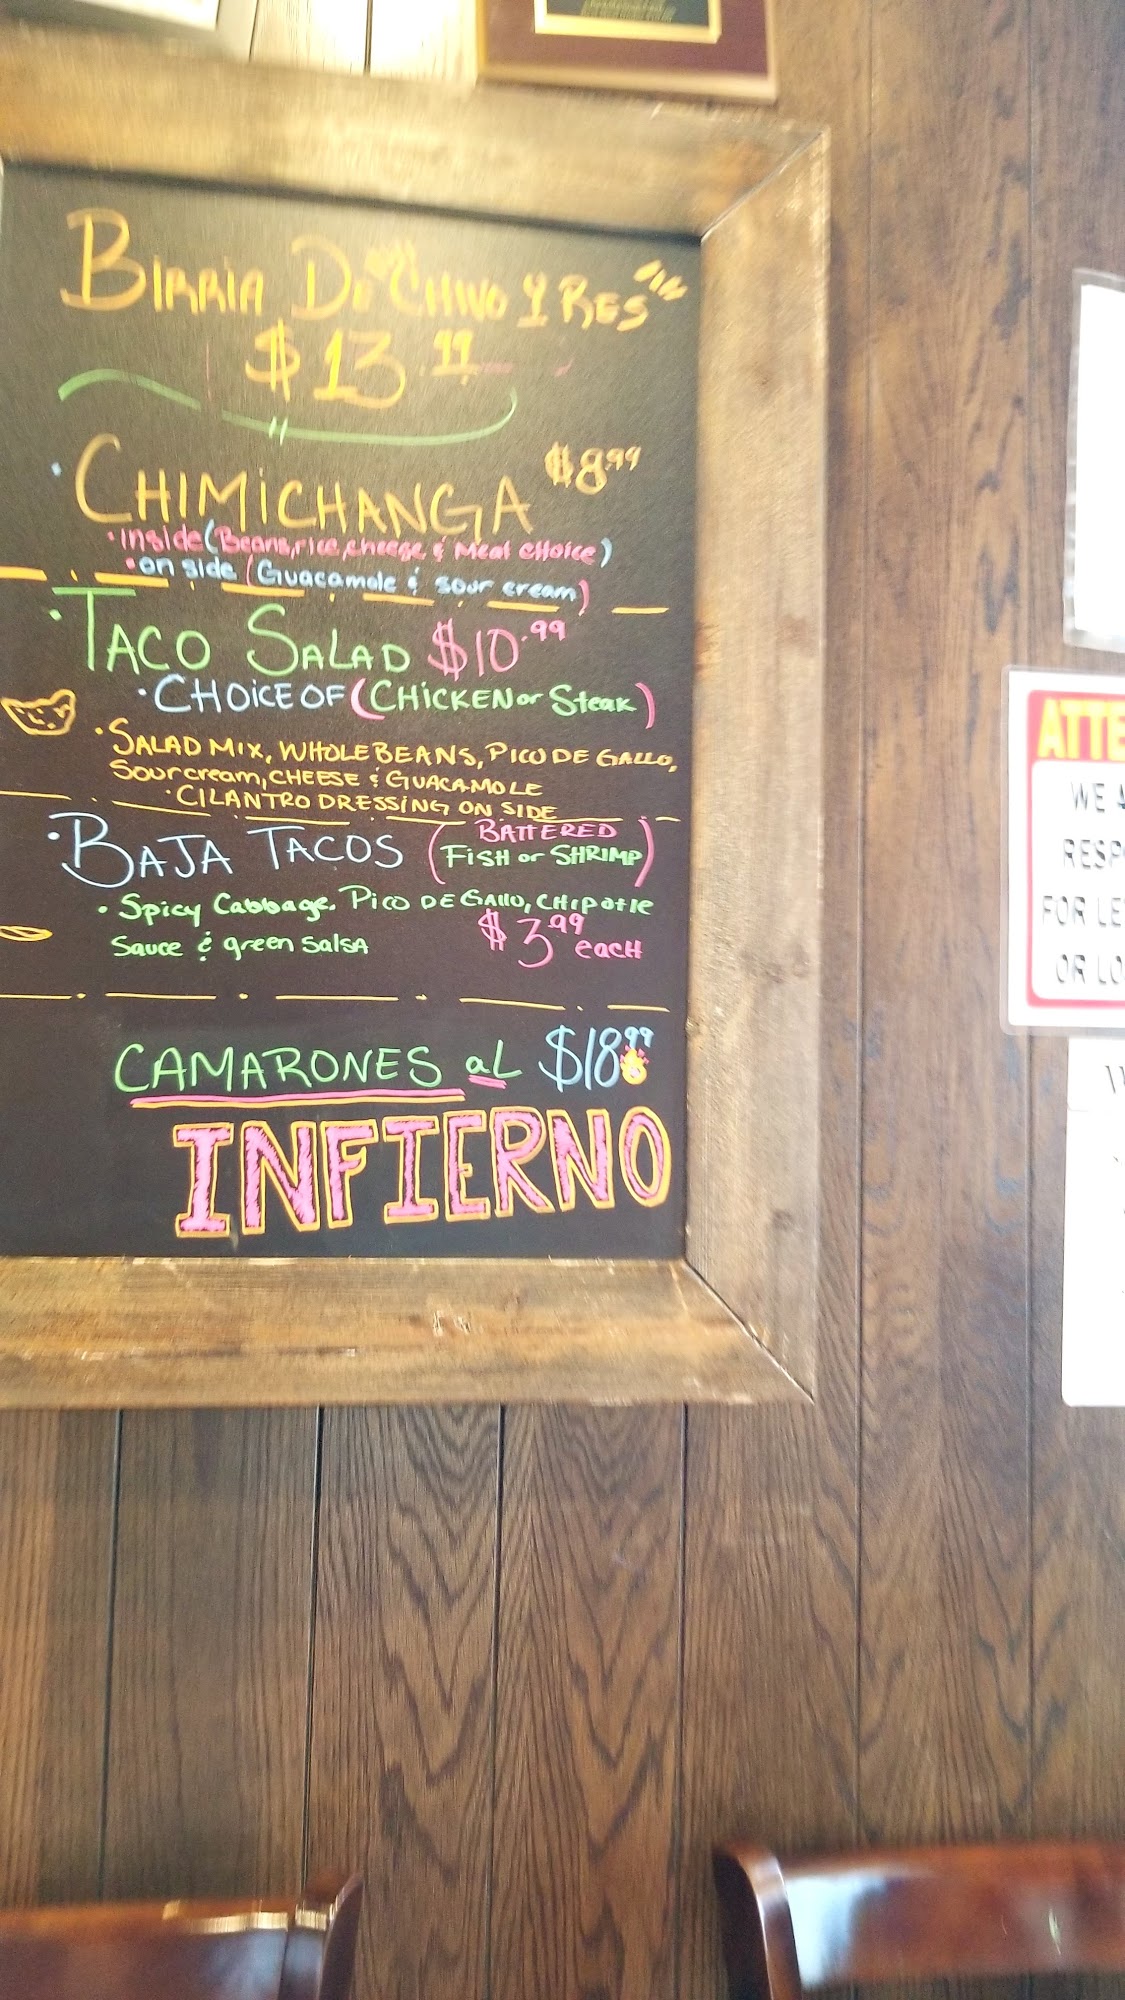 BIRRIA DE CHIVO Y RES
$13.99
CHIMICHANGA $8.99
• inside (Beans, rice, cheese & Meat CHOice)
• on side (Guacamole & sour cream)
• TACO SALAD $10.99
• CHOICE OF (CHICKEN or Steak)
• SALAD MIX, WHOLE BEANS, PICO DE GALLO,
Sour cream, CHEESE & GUACAMOLE
• CILANTRO DRESSING ON SIDE
• BAJA TACOS (BATTERED
FISH or SHRIMP)
• Spicy Cabbage. PICO DE GALLO, CHIPOTLE
Sauce & green SalsA
$3.99 each
CAMARONES aL $18.99
INFIERNO
ATTE
WE A
RESP
FOR LE
OR LO